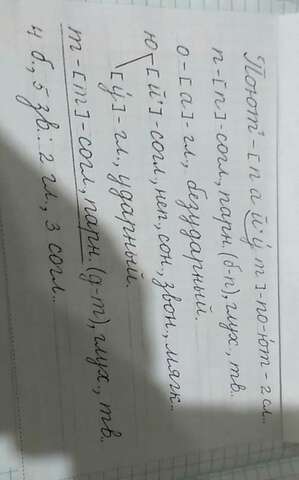 Поют² - [п а й' у́ т] - по-ют - 2 сл..
п - [п] - согл, парн. (б-п), глух., тв..
о - [а] - гл., безударный.
ю [й'] - согл., неп., сон., звон., мягк..
[у́] - гл., ударный.
т - [т] - согл., парн. (д-т), глух., тв..
4 б., 5 зв.: 2 гл., 3 согл..